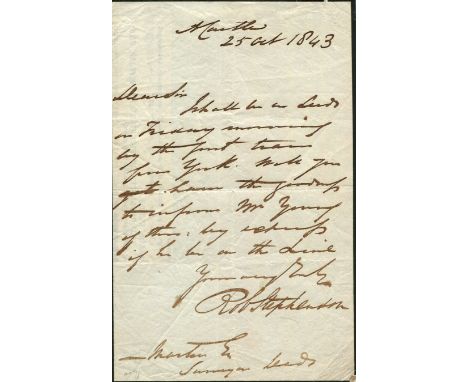 25 Oct 1843
Dear Sir
I shall be in Leeds
on Friday morning
by the first train
from York. Will you
have the goodness
to inform Mr Young
of this. by express
if he be on the Line
Yours very truly
Rob Stephenson
Leeds